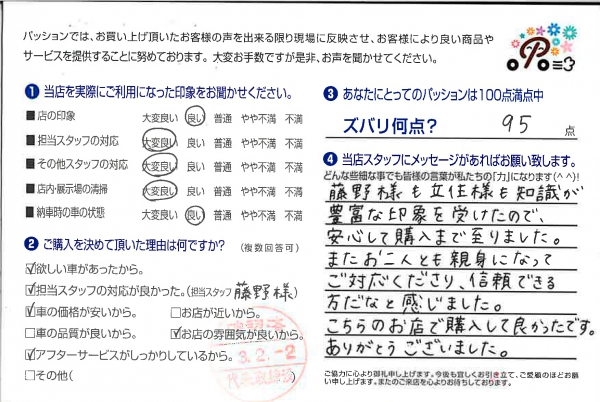 パッションでは、お買い上げ頂いたお客様の声を出来る限り現場に反映させ、お客様により良い商品や
サービスを提供することに努めております。大変お手数ですが是非、お声を聞かせてください。
1 当店を実際にご利用になった印象をお聞かせください。
■店の印象 大変良い 良い 普通 やや不満 不満
■担当スタッフの対応 大変良い 良い 普通 やや不満 不満
■その他スタッフの対応 大変良い 良い 普通 やや不満 不満
■店内・展示場の清掃 大変良い 良い 普通 やや不満 不満
■納車時の車の状態 大変良い 良い 普通 やや不満 不満
2 ご購入を決めて頂いた理由は何ですか？ (複数回答可)
☑欲しい車があったから。
☑担当スタッフの対応が良かった。(担当スタッフ 藤野様)
☑車の価格が安いから。 □お店が近いから。
□車の品質が良いから。 ☑お店の雰囲気が良いから。
☑アフターサービスがしっかりしているから。
□その他( )
3.2.-2
3 あなたにとってのパッションは100点満点中
ズバリ何点？ 95 点
4 当店スタッフにメッセージがあればお願い致します。
どんな些細な事でも皆様の言葉が私たちの「力」になります(^ ^)!
藤野様も立住様も知識が
豊富な印象を受けたので、
安心して購入まで至りました。
またお二人とも親身になって
ご対応くださり、信頼できる
方だなと感じました。
こちらのお店で購入して良かったです。
ありがとうございました。
ご協力に心より御礼申し上げます。今後も宜しくお引き立て、ご愛顧のほどお願
い申し上げます。またのご来店を心よりお待ちしております。